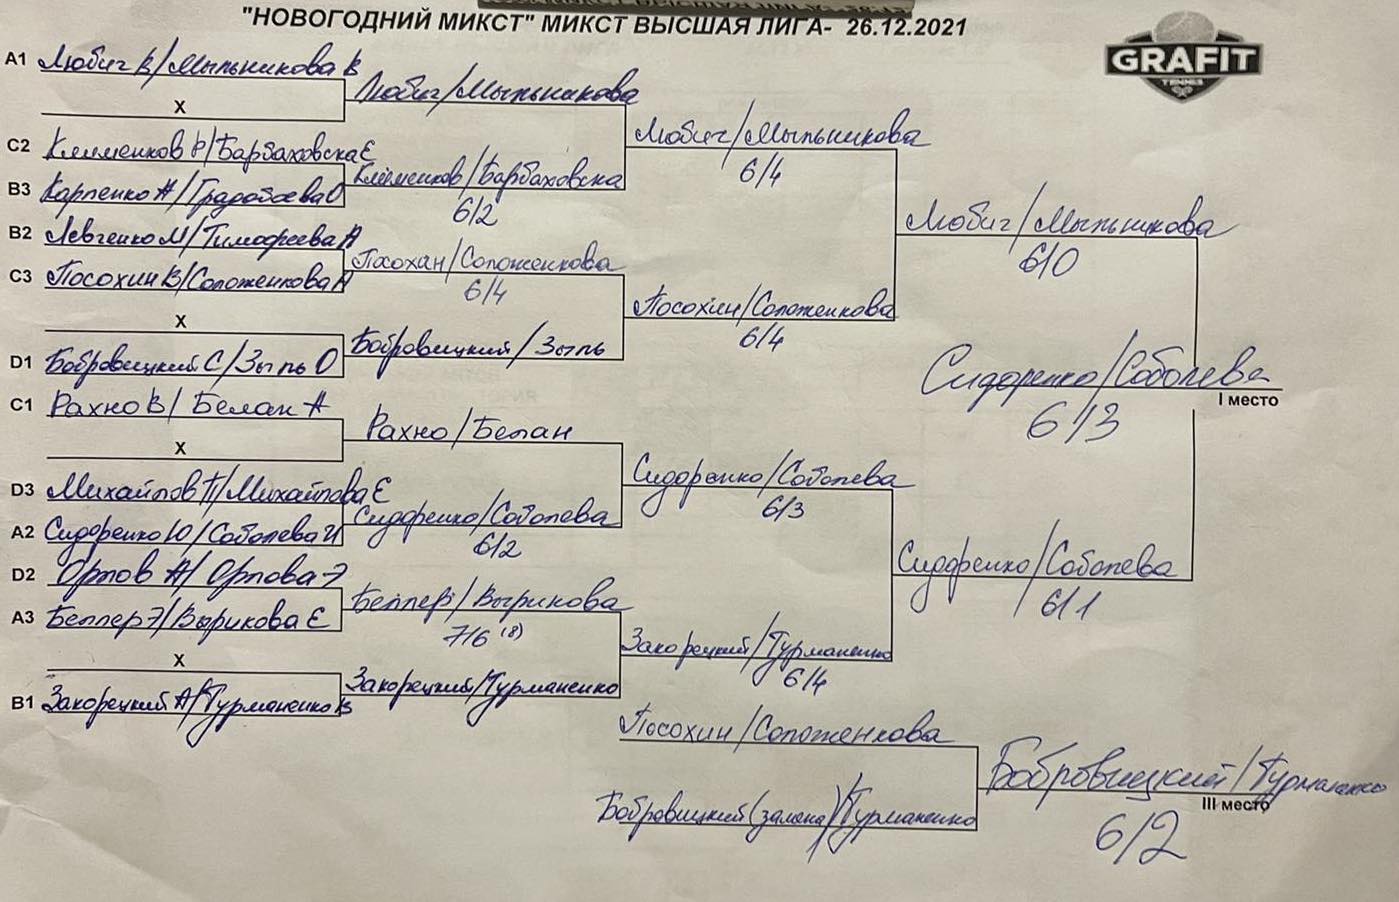 "НОВОГОДНИЙ МИКСТ" МИКСТ ВЫСШАЯ ЛИГА- 26.12.2021
GRAFIT
TENNIS
A1 Любич В/Мыльникова В
X
Любич/Мыльникова
C2 Клименков Р/Барбаховска Е
B3 Карпенко А/Градобоева О
Клеменков/Барбаховска
6/2
Любич/Мыльникова
6/4
B2 Левченко М/Тимофеева А
C3 Посохин В/Соложенкова А
Посохан/Соложенкова
6/4
X
D1 Бобровицкий С/Зыль О
Бобровицкий/Зыль
Посохин/Соложенкова
6/4
Любич/Мыльникова
6/0
C1 Рахно В/Белан А
X
Рахно/Белан
D3 Михайлов П/Михайлова Е
A2 Сидоренко Ю/Соболева И
Сидоренко/Соболева
6/2
Сидоренко/Соболева
6/3
D2 Орлов А/Орлова Э
A3 Беллер Э/Вырикова Е
Беллер/Вырикова
7/6 (8)
X
B1 Закорецкий А/Турманенко В
Закорецкий/Турманенко
Закорецкий/Турманенко
6/4
Сидоренко/Соболева
6/1
Сидоренко/Соболева
I место
6/3
Посохин/Соложенкова
Бобровицкий (замена)/Турманенко
Бобровицкий/Турманенко
III место
6/2